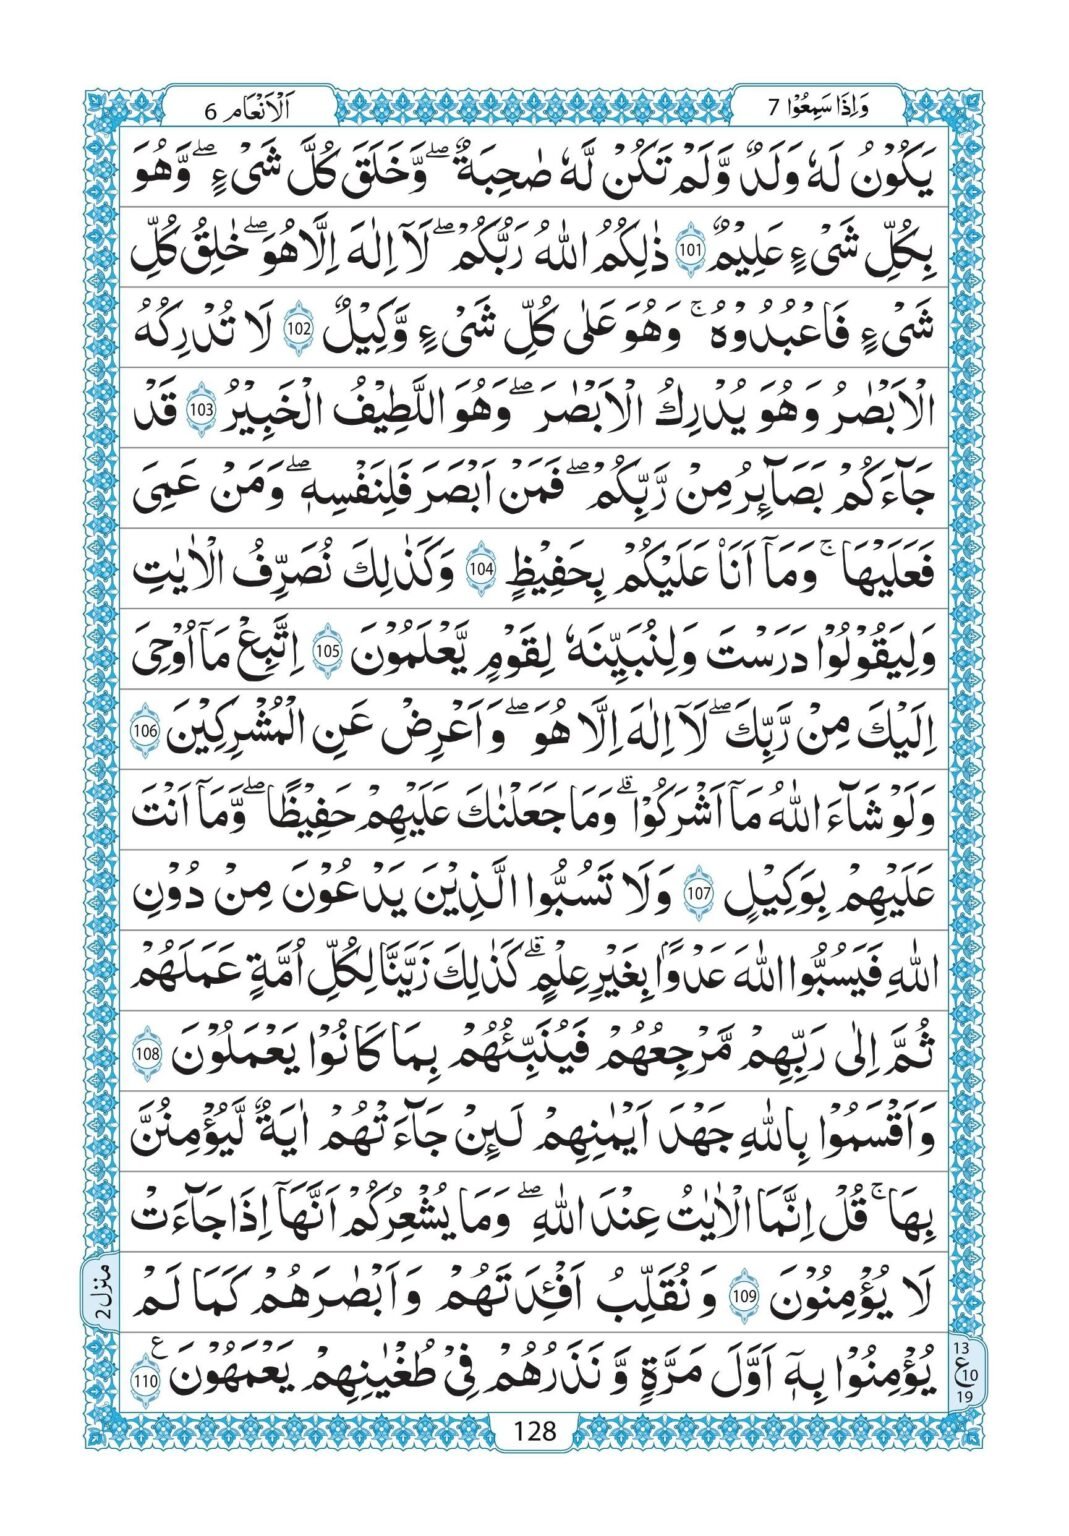 وَاِذَا سَمِعُوْا 7
اَلْاَنْعَام 6
يَكُوْنُ لَهٗ وَلَدٌ وَّلَمْ تَكُنْ لَّهٗ صَٰحِبَةٌ ۖ وَّخَلَقَ كُلَّ شَیْءٍ ۖ وَّهُوَ
بِكُلِّ شَیْءٍ عَلِيْمٌ 101 ذٰلِكُمُ اللّٰهُ رَبُّكُمْ ۖ لَآ اِلٰهَ اِلَّا هُوَ ۖ خٰلِقُ كُلِّ
شَیْءٍ فَاعْبُدُوْهُ ۚ وَهُوَ عَلٰى كُلِّ شَیْءٍ وَّكِيْلٌ 102 لَا تُدْرِكُهُ
الْاَبْصٰرُ وَهُوَ يُدْرِكُ الْاَبْصٰرَ ۖ وَهُوَ اللَّطِيْفُ الْخَبِيْرُ 103 قَدْ
جَآءَكُمْ بَصَآئِرُ مِنْ رَّبِّكُمْ ۖ فَمَنْ اَبْصَرَ فَلِنَفْسِهٖ ۖ وَمَنْ عَمِیَ
فَعَلَيْهَا ۚ وَمَآ اَنَا۠ عَلَيْكُمْ بِحَفِيْظٍ 104 وَكَذٰلِكَ نُصَرِّفُ الْاٰيٰتِ
وَلِيَقُوْلُوْا دَرَسْتَ وَلِنُبَيِّنَهٗ لِقَوْمٍ يَّعْلَمُوْنَ 105 اِتَّبِعْ مَآ اُوْحِیَ
اِلَيْكَ مِنْ رَّبِّكَ ۖ لَآ اِلٰهَ اِلَّا هُوَ ۖ وَاَعْرِضْ عَنِ الْمُشْرِكِيْنَ 106
وَلَوْ شَآءَ اللّٰهُ مَآ اَشْرَكُوْا ۗ وَمَا جَعَلْنٰكَ عَلَيْهِمْ حَفِيْظًا ۖ وَّمَآ اَنْتَ
عَلَيْهِمْ بِوَكِيْلٍ 107 وَلَا تَسُبُّوا الَّذِيْنَ يَدْعُوْنَ مِنْ دُوْنِ
اللّٰهِ فَيَسُبُّوا اللّٰهَ عَدْوًا بِغَيْرِ عِلْمٍ ۗ كَذٰلِكَ زَيَّنَّا لِكُلِّ اُمَّةٍ عَمَلَهُمْ
ثُمَّ اِلٰى رَبِّهِمْ مَّرْجِعُهُمْ فَيُنَبِّئُهُمْ بِمَا كَانُوْا يَعْمَلُوْنَ 108
وَاَقْسَمُوْا بِاللّٰهِ جَهْدَ اَيْمٰنِهِمْ لَئِنْ جَآءَتْهُمْ اٰيَةٌ لَّيُؤْمِنُنَّ
بِهَا ۚ قُلْ اِنَّمَا الْاٰيٰتُ عِنْدَ اللّٰهِ ۖ وَمَا يُشْعِرُكُمْ اَنَّهَآ اِذَا جَآءَتْ
لَا يُؤْمِنُوْنَ 109 وَنُقَلِّبُ اَفْئِدَتَهُمْ وَاَبْصٰرَهُمْ كَمَا لَمْ
منزل 2
يُؤْمِنُوْا بِهٖٓ اَوَّلَ مَرَّةٍ وَّنَذَرُهُمْ فِیْ طُغْيٰنِهِمْ يَعْمَهُوْنَ ع 110
13
ع 10
19
128